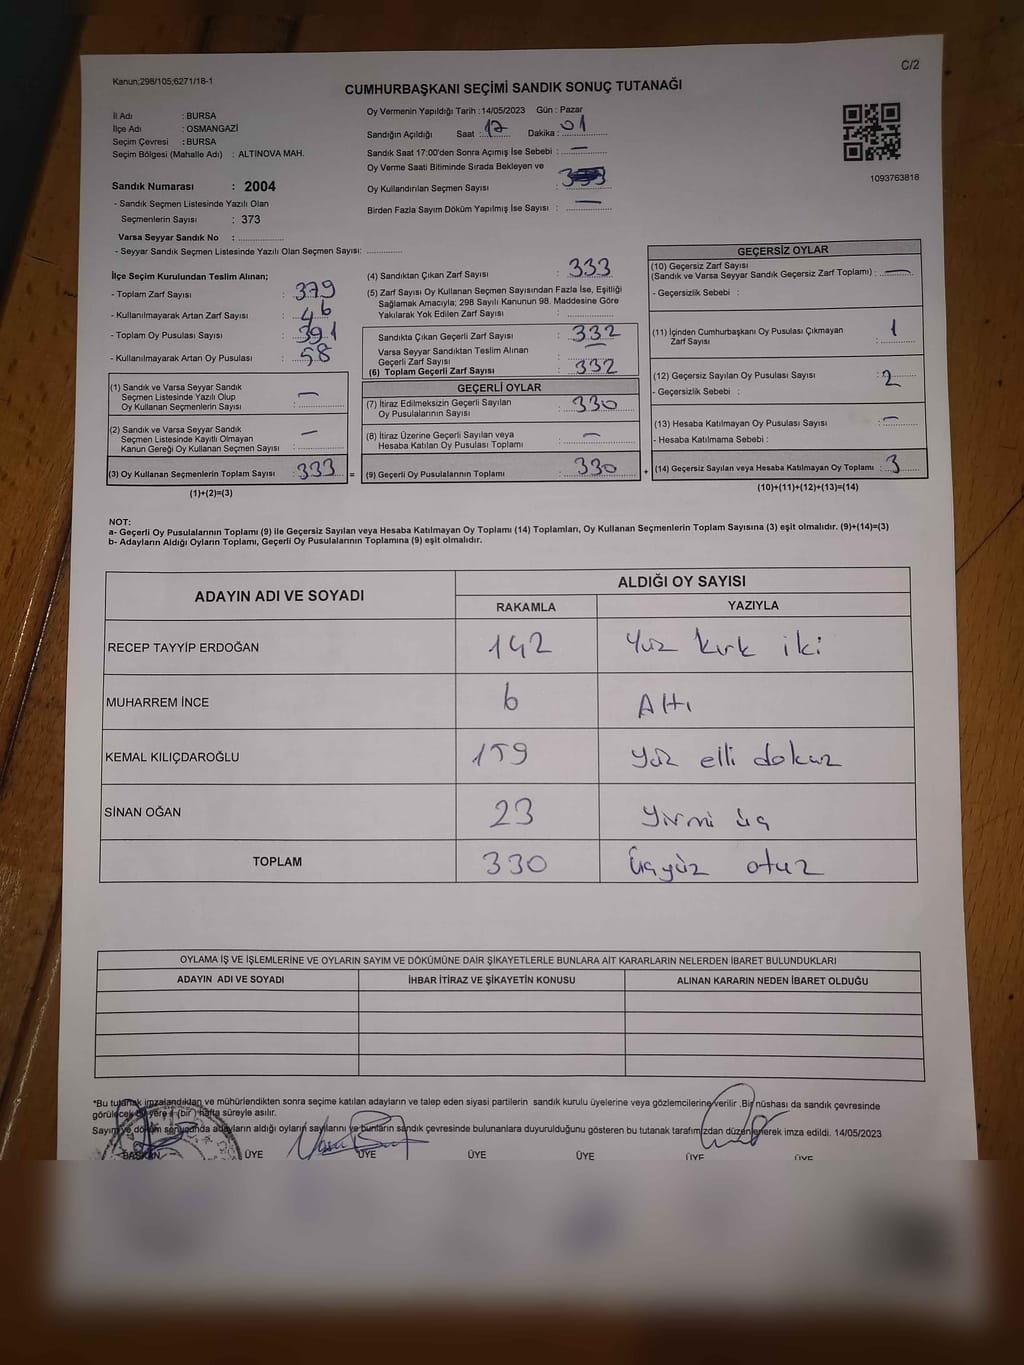 Kanun:298/105;6271/18-1
C/2
CUMHURBAŞKANI SEÇİMİ SANDIK SONUÇ TUTANAĞI
İl Adı : BURSA
İlçe Adı : OSMANGAZİ
Seçim Çevresi : BURSA
Seçim Bölgesi (Mahalle Adı) : ALTINOVA MAH.
Oy Vermenin Yapıldığı Tarih : 14/05/2023 Gün : Pazar
Sandığın Açıldığı Saat : 17 Dakika : 01
Sandık Saat 17:00'den Sonra Açımış İse Sebebi : —
Oy Verme Saati Bitiminde Sırada Bekleyen ve
Oy Kullandırılan Seçmen Sayısı :
Birden Fazla Sayım Döküm Yapılmış İse Sayısı : —
1093763818
Sandık Numarası : 2004
- Sandık Seçmen Listesinde Yazılı Olan
Seçmenlerin Sayısı : 373
Varsa Seyyar Sandık No :
- Seyyar Sandık Seçmen Listesinde Yazılı Olan Seçmen Sayısı:
İlçe Seçim Kurulundan Teslim Alınan;
- Toplam Zarf Sayısı : 379
- Kullanılmayarak Artan Zarf Sayısı : 46
- Toplam Oy Pusulası Sayısı : 391
- Kullanılmayarak Artan Oy Pusulası : 58
(1) Sandık ve Varsa Seyyar Sandık
Seçmen Listesinde Yazılı Olup
Oy Kullanan Seçmenlerin Sayısı : —
(2) Sandık ve Varsa Seyyar Sandık
Seçmen Listesinde Kayıtlı Olmayan
Kanun Gereği Oy Kullanan Seçmen Sayısı : —
(3) Oy Kullanan Seçmenlerin Toplam Sayısı : 333 =
(1)+(2)=(3)
(4) Sandıktan Çıkan Zarf Sayısı : 333
(5) Zarf Sayısı Oy Kullanan Seçmen Sayısından Fazla İse, Eşitliği
Sağlamak Amacıyla; 298 Sayılı Kanunun 98. Maddesine Göre
Yakılarak Yok Edilen Zarf Sayısı :
Sandıkta Çıkan Geçerli Zarf Sayısı : 332
Varsa Seyyar Sandıktan Teslim Alınan
Geçerli Zarf Sayısı : —
(6) Toplam Geçerli Zarf Sayısı : 332
GEÇERLİ OYLAR
(7) İtiraz Edilmeksizin Geçerli Sayılan
Oy Pusulalarının Sayısı : 330
(8) İtiraz Üzerine Geçerli Sayılan veya
Hesaba Katılan Oy Pusulası Toplamı : —
(9) Geçerli Oy Pusulalarının Toplamı : 330 +
GEÇERSİZ OYLAR
(10) Geçersiz Zarf Sayısı
(Sandık ve Varsa Seyyar Sandık Geçersiz Zarf Toplamı) : —
- Geçersizlik Sebebi :
(11) İçinden Cumhurbaşkanı Oy Pusulası Çıkmayan
Zarf Sayısı : 1
(12) Geçersiz Sayılan Oy Pusulası Sayısı : 2
- Geçersizlik Sebebi :
(13) Hesaba Katılmayan Oy Pusulası Sayısı : —
- Hesaba Katılmama Sebebi :
(14) Geçersiz Sayılan veya Hesaba Katılmayan Oy Toplamı : 3
(10)+(11)+(12)+(13)=(14)
NOT:
a- Geçerli Oy Pusulalarının Toplamı (9) ile Geçersiz Sayılan veya Hesaba Katılmayan Oy Toplamı (14) Toplamları, Oy Kullanan Seçmenlerin Toplam Sayısına (3) eşit olmalıdır. (9)+(14)=(3)
b- Adayların Aldığı Oyların Toplamı, Geçerli Oy Pusulalarının Toplamına (9) eşit olmalıdır.
ADAYIN ADI VE SOYADI
ALDIĞI OY SAYISI
RAKAMLA YAZIYLA
RECEP TAYYİP ERDOĞAN 142 Yüz kırk iki
MUHARREM İNCE 6 Altı
KEMAL KILIÇDAROĞLU 159 Yüz elli dokuz
SİNAN OĞAN 23 Yirmi üç
TOPLAM 330 Üçyüz otuz
OYLAMA İŞ VE İŞLEMLERİNE VE OYLARIN SAYIM VE DÖKÜMÜNE DAİR ŞİKAYETLERLE BUNLARA AİT KARARLARIN NELERDEN İBARET BULUNDUKLARI
ADAYIN ADI VE SOYADI İHBAR İTİRAZ VE ŞİKAYETİN KONUSU ALINAN KARARIN NEDEN İBARET OLDUĞU
*Bu tutanak imzalandıktan ve mühürlendikten sonra seçime katılan adayların ve talep eden siyasi partilerin sandık kurulu üyelerine veya gözlemcilerine verilir .Bir nüshası da sandık çevresinde
görülecek bir yere 1 (bir) hafta süreyle asılır.
Sayım ve döküm sonucunda adayların aldığı oyların sayılarını ve bunların sandık çevresinde bulunanlara duyurulduğunu gösteren bu tutanak tarafımızdan düzenlenerek imza edildi. 14/05/2023
BAŞKAN ÜYE ÜYE ÜYE ÜYE ÜYE ÜYE